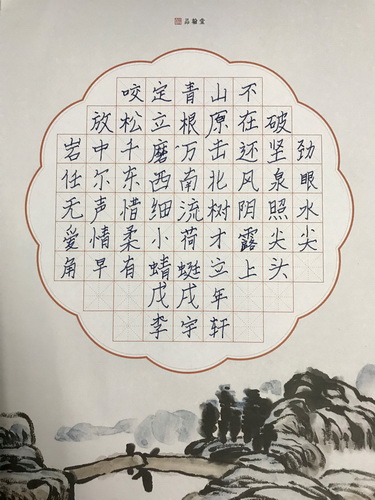 品翰堂
咬定青山不
放松立根原在破
岩中千磨万击还坚劲
任尔东西南北风泉眼
无声惜细流树阴照水
爱情柔小荷才露尖尖
角早有蜻蜓立上头
戊戌年
李宇轩